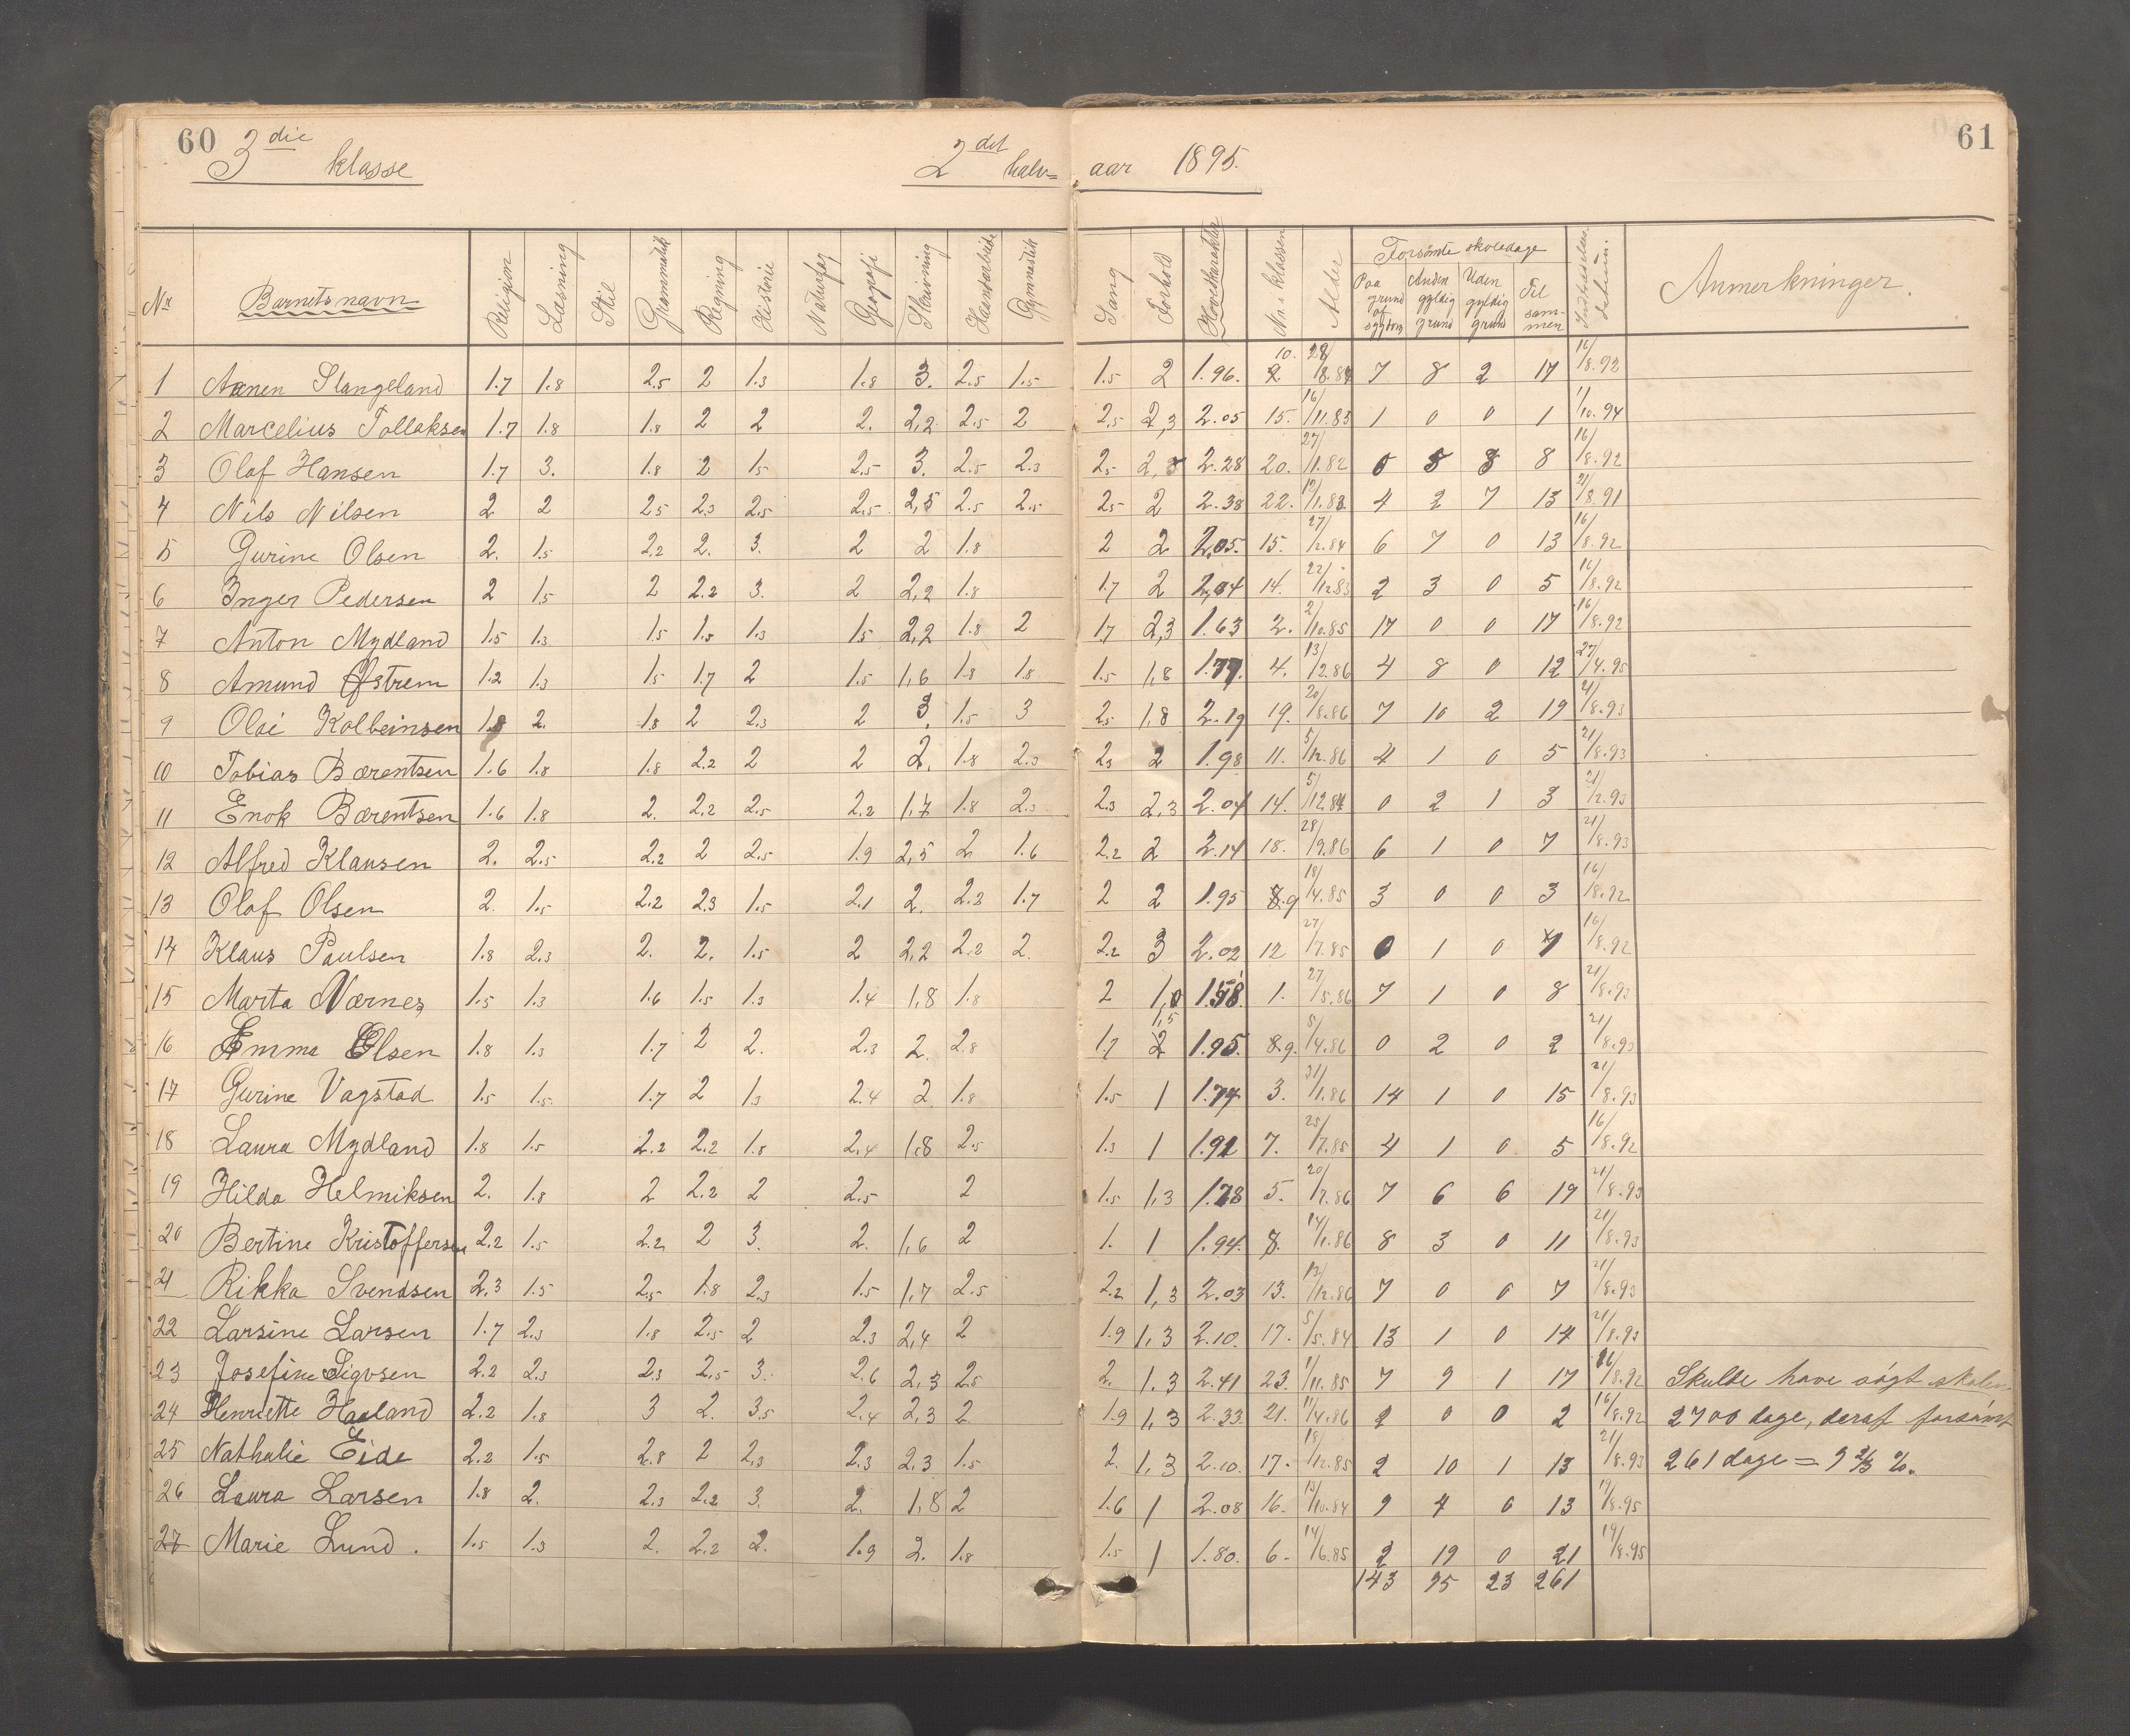 60 3die klasse 2det halv= aar 1895. 61
Nr Barnets navn Religion Læsning Stil Grammatik Regning Historie Naturfag Geografi Skrivning Haandarbeide Gymnastik Sang Forhold Hovedkarakter Nr. i klassen Alder Forsömte skoledage Paa grund af sygdom Anden gyldig grund Uden gyldig grund Til sammen Anmerkninger.
1 Stangeland 1.7 1.8 2.5 2 1.3 1.8 3. 2.5 1.5 1.5 2 1.96. 10. 28/ 7 8 2 17 16/8.92
2 Marcelius Tollaksen 1.7 1.8 1.8 2 2 2. 2,2 2.5 2 2,5 2,3 2.05 15. 16/11.83 1 0 0 1 1/10.94
3 Olaf Hansen 1.7 3. 1.8 2 1.5 2.5 3. 2.5 2.3 2.5 2.28 20. 27/11.82 0 8 16/8.92
4 Nils Nilsen 2 2 2.5 2.3 2.5 2.5 2,5 2.5 2.5 2.5 2 2.38 22. 4 2 7 13 21/8.91
5 Gurine Olsen 2. 1.5 2.2 2. 3. 2 2 1.8 2 2 2.05. 15. 27/12.84 6 7 0 13 16/8.92
6 Inger Pedersen 2 1.5 2 2.2 3. 2 2,2 1.8 1.7 2 2,04 14. 22/12.83 2 3 0 5 16/8.92
7 Anton Mydland 1.5 1.3 1.5 1.5 1.3 1.5 2,2 1.8 2 1.7 2,3 1.63 2. 2/10.85 17 0 0 17 16/8.92
8 Amund Østrem 1.2 1.3 1.5 1.7 2 1.5 1,6 1.8 1.8 1.5 1,8 4. 13/12.86 4 8 0 12 27/4.95
9 Olai Kolbeinsen 1.8 2. 1.8 2 2.3 2 3. 1.5 3 2.5 1,8 2.19 19. 20/8.86 7 10 2 19 21/8.93
10 Tobias Bærentsen 1.6 1.8 1.8 2.2 2 2 2. 1.8 2.3 2.3 2 1.98 11. 5/12.86 4 1 0 5 21/8.93
11 Enok Bærentsen 1.6 1.8 2. 2.2 2.5 2.2 1,7 1.8 2.3 2.3 2,3 2.04 14. 5/12.84 0 2 1 3 21/2.93
12 Alfred Klausen 2. 2.5 2.2 2 2.5 1.9 2,5 2 1.6 2.2 2 2.14 18. 28/9.86 6 1 0 7 21/8.93
13 Olaf Olsen 2. 1.5 2.2 2.3 1.5 2.1 2. 2.2 1.7 2 2 1.95 8.9 18/4.85 3 0 0 3 16/8.92
14 Klaus Paulsen 1.8 2.3 2. 2. 1.5 2 2,2 2.2 2. 2.2 3 2.02 12 27/7.85 0 1 0 1 16/8.92
15 Marta Værnes 1.5 1.3 1.6 1.5 1.3 1.4 1,8 1.8 2 1. 27/5.86 7 1 0 8 21/8.93
16 Emma Olsen 1.8 1.3 1.7 2 2. 2.3 2. 2.8 1.7 1,5 2 1.95. 8.9. 5/4.86 0 2 0 2 21/8.93
17 Gurine Vagstad 1.5 1.5. 1.7 2 1.3 2.4 2 1.8 1.5 1 3. 31/1.86 14 1 0 15 21/8.93
18 Laura Mydland 1.8 1.5 2.2 2.2 1.8 2,4 1.8 2.5 1.3 1 1.91 7. 25/7.85 4 1 0 5 16/8.92
19 Hilda Helmiksen 2. 1.8 2 2.2 2 2.5 2 1.5 1,3 1.78 5. 20/7.86 7 6 6 19 21/8.93
20 Bertine Kristoffersen 2.2 1.5 2.2 2 3. 2. 1,6 2 1. 1 1.94. 8. 14/1.86 8 3 0 11 21/8.93
21 Rikka Svendsen 2.3 1.5 2.5 1.8 2.3 1.5 1,7 2.5 2.2 1,3 2.03 13. 13/12.86 7 0 0 7 21/8.93
22 Larsine Larsen 1.7 2.3 1.8 2.5 2 2.3 2,4 2 1.9 1,3 2.10. 17. 5/5.84 13 1 0 14 21/8.93
23 Josefine Sigvsen 2.2 2.3 2.3 2.5 3. 2.6 2,3 2.5 2. 1.3 2.41 23. 1/11.85 7 9 1 17 16/8.92 Skulde have søgt skolen
24 Henriette Haaland 2.2 1.8 3 2. 3.5 2.4 2,3 2 1.9 1,3 2.33. 21. 11/4.86 2 0 0 2 16/8.92 2700 dage, deraf forsömt
25 Nathalie Eide 2.2 1.5 2.8 2 2.3 2.3 2.3 1.5 2. 1,3 2.10. 17. 18/12.85 2 10 1 13 21/8.93 261 dage = 9 2/3 %.
26 Laura Larsen 1.8 2. 2.3 2.2 3. 2. 1,8 2 1.6 1 2.08 16. 13/10.84 9 4 0 13 19/8.95
27 Marie Lund. 1.5 1.3 2. 2.2 2. 1.9 2. 1.8 1.5 1 1.80. 6. 14/6.85 2 19 0 21 19/8.95
143 95 23 261